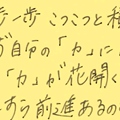 歩一歩 こつこつと積
ず自分の「力」に
「力」が花開く
すら前進あるの